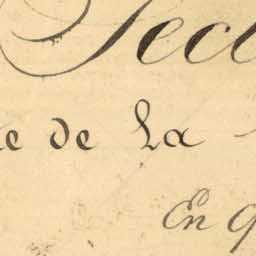 Sect
e de La
En q